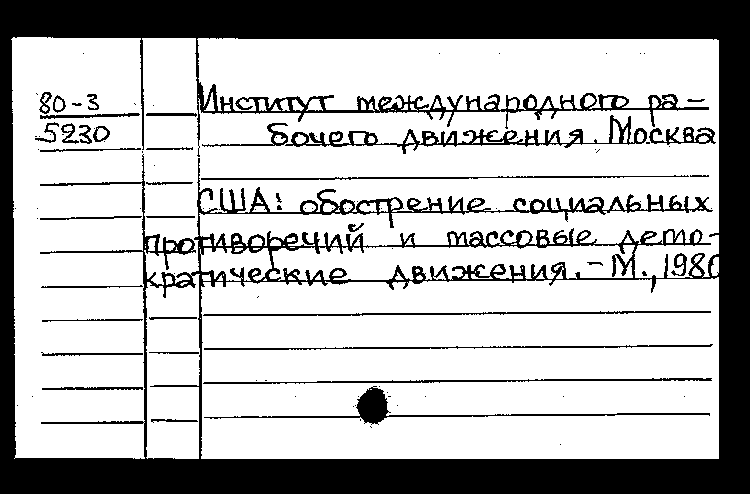 80-3
5230
Институт международного ра-
бочего движения. Москва
США: обострение социальных
противоречий и массовые демо-
кратические движения. - М., 1980